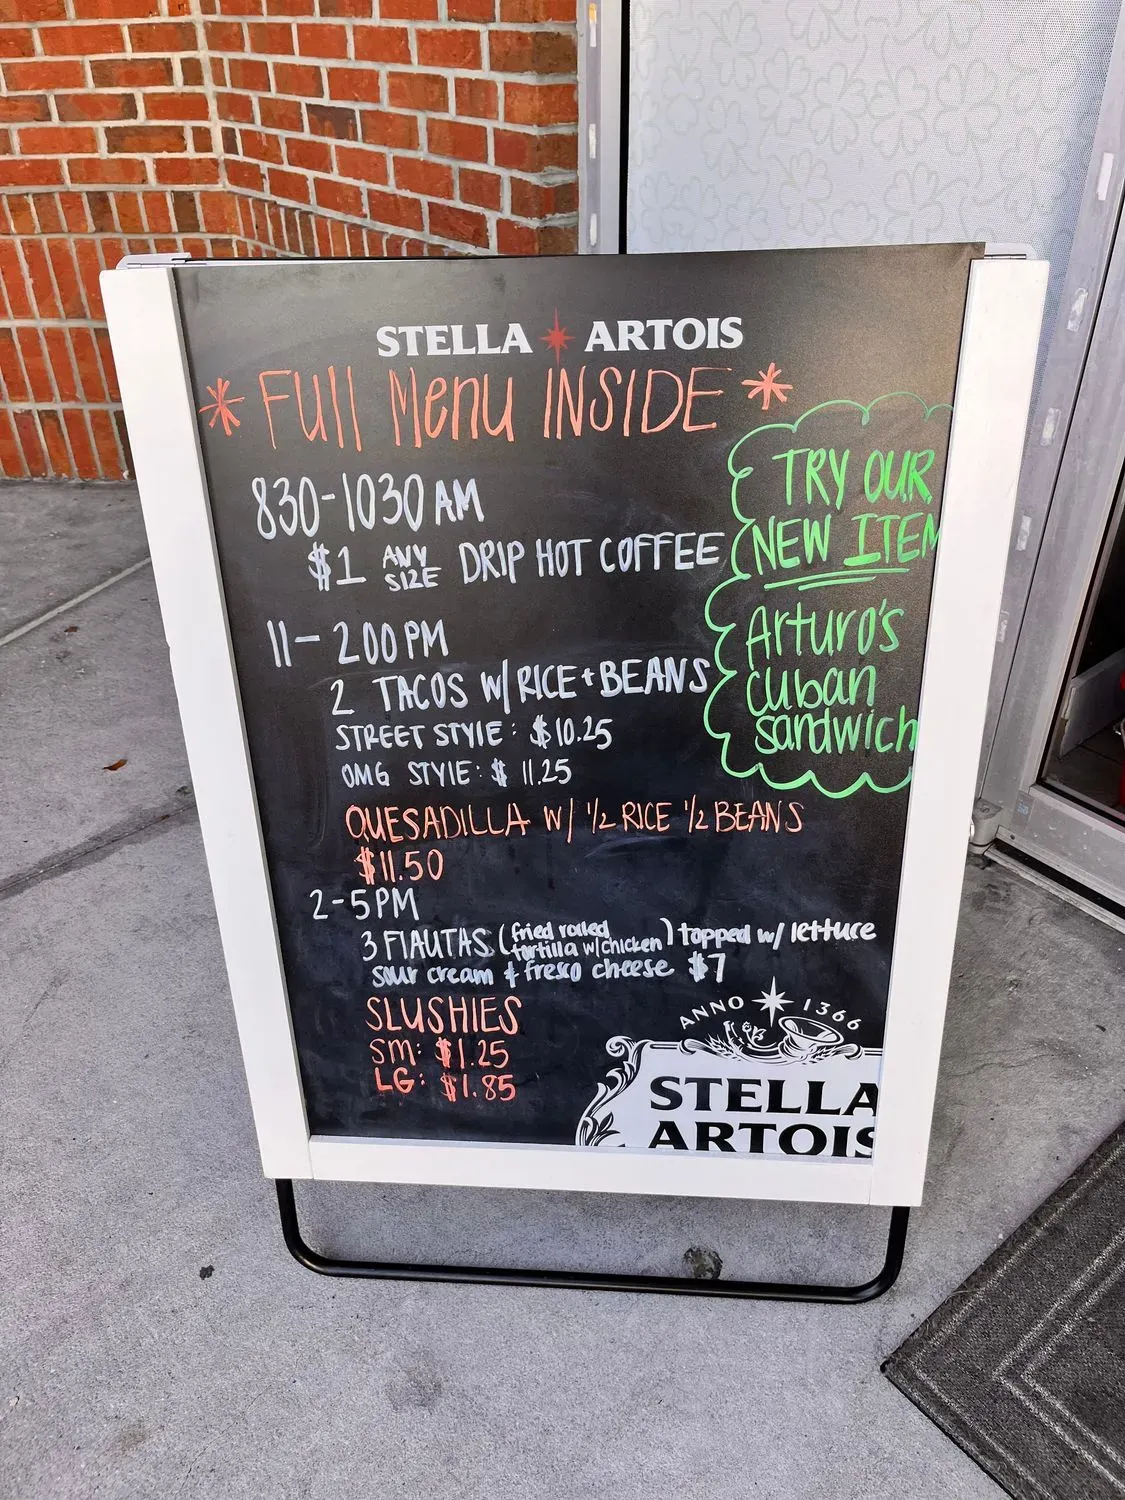 STELLA ARTOIS
* FUll Menu INSIDE *
830-1030 AM
$1 ANY SIZE DRIP HOT COFFEE
11- 200 PM
2 TACOS W/ RICE + BEANS
STREET STYlE: $10.25
OMG STYlE: $11.25
QUESADILLA W/ 1/2 RICE 1/2 BEANS
$11.50
2-5PM
3 FlAUTAS (fried rolled tortilla w/chicken) topped w/ lettuce
sour cream & fresco cheese $7
SLUSHIES
SM: $1.25
LG: $1.85
TRY OUR
NEW ITEM
Arturo's
cuban
sandwich
ANNO 1366
STELLA
ARTOIS